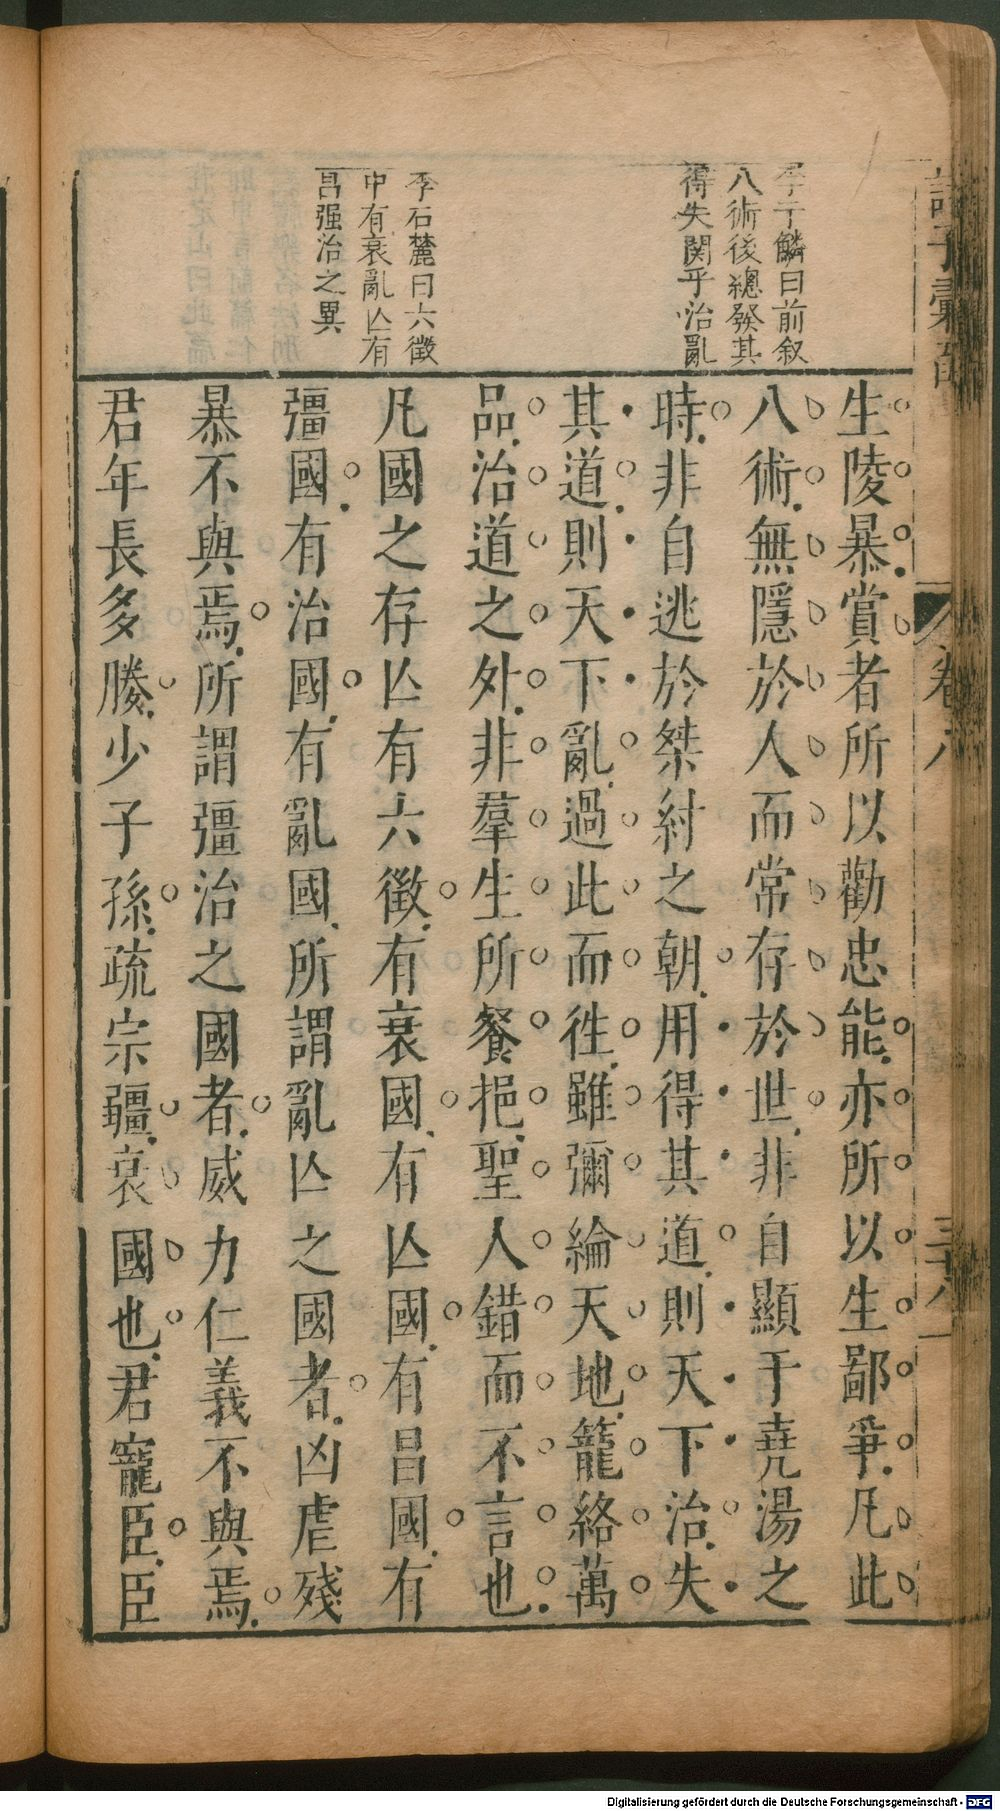 李于鱗曰前叙
八術後總發其
得失関乎治亂
李石麓曰六徵
中有衰亂亾有
昌强治之異
生陵暴賞者所以勸忠能亦所以生鄙爭凡此
八術無隱於人而常存於世非自顯于堯湯之
時非自逃於桀紂之朝用得其道則天下治失
其道則天下亂過此而徃雖彌綸天地籠絡萬
品治道之外非羣生所餐挹聖人錯而不言也
凡國之存亾有六徵有衰國有亾國有昌國有
彊國有治國有亂國所謂亂亾之國者凶虐殘
暴不與焉所謂彊治之國者威力仁義不與焉
君年長多媵少子孫疏宗彊衰國也君寵臣臣
卷八
Digitalisierung gefördert durch die Deutsche Forschungsgemeinschaft - DFG